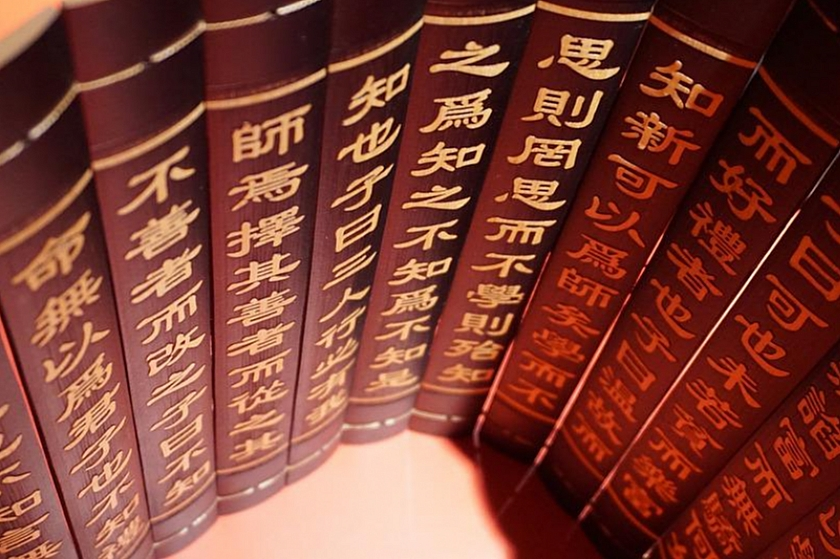 諂富而無驕何
曰可也未若貧而樂富
而好禮者也子曰溫故而
知新可以爲師矣學而不
思則罔思而不學則殆知
之爲知之不知爲不知是
知也子曰三人行必有我
師焉擇其善者而從之其
不善者而改之子曰不知
命無以爲君子也不知禮
也不知言無